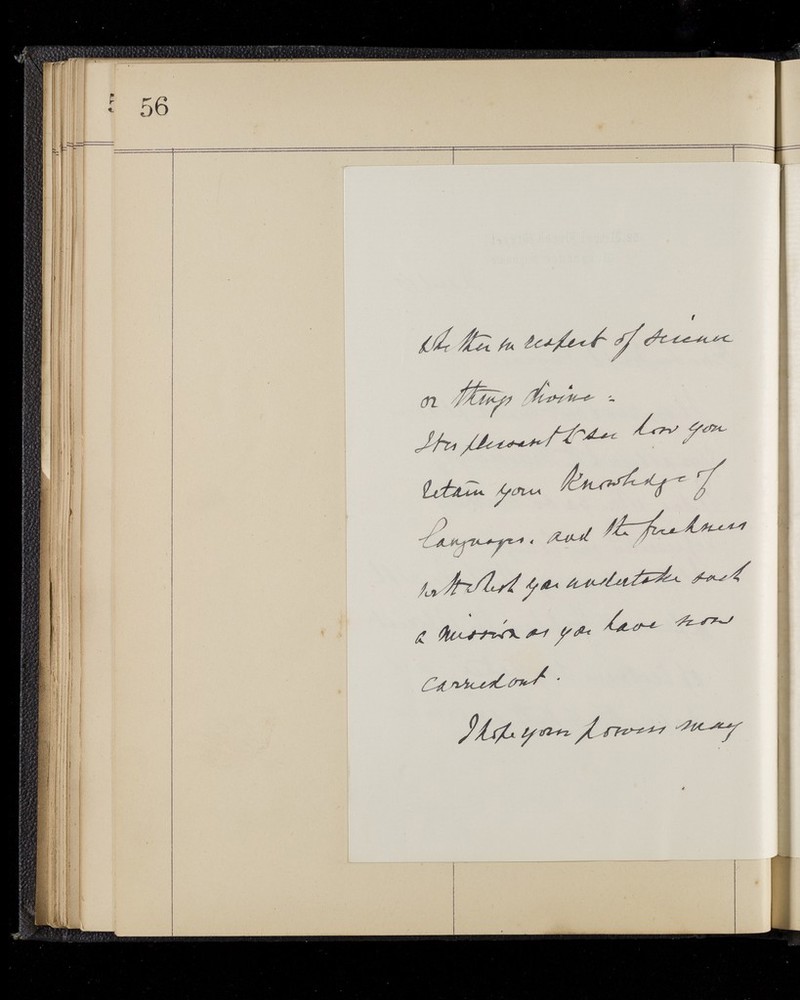 56
whether in respect of science
or things divine -
It is pleasant to see how you
retain your knowledge of
languages, and the freshness
with which you undertake such
a mission as you have now
carried out.
I hope your powers may